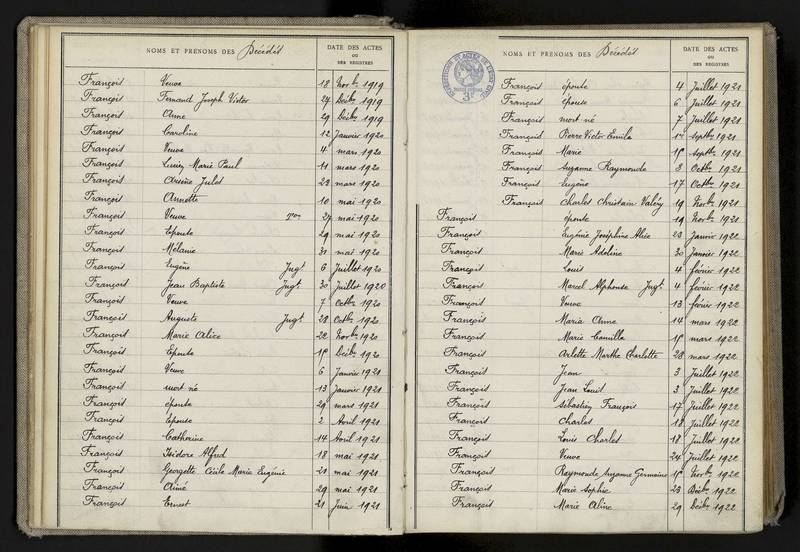 NOMS ET PRÉNOMS DES Décédés
DATE DES ACTES
OU
DES REGISTRES
François Veuve 18 Novbre 1919
François Fernand Joseph Victor 24 Décbre 1919
François Anna 29 Décbre 1919
François Caroline 12 Janvier 1920
François Veuve 4 mars 1920
François Lucien Marie Paul 11 mars 1920
François Arsène Jules 23 mars 1920
François Annette 10 mai 1920
François Veuve 27 mai 1920
François Epouse 29 mai 1920
François Mélanie 31 mai 1920
François Eugène Jugt 6 Juillet 1920
François Jean Baptiste Jugt 30 Juillet 1920
François Veuve 7 Octbre 1920
François Auguste Jugt 28 Octbre 1920
François Marie Alice 22 Novbre 1920
François Epouse Décbre 1920
François Veuve 6 Janvier 1921
François mort né 13 Janvier 1921
François épouse 29 mars 1921
François Epouse 2 Avril 1921
François Catherine 14 Avril 1921
François Isidore Alfred 18 mai 1921
François Georgette Cécile Marie Eugénie 21 mai 1921
François Aimé 29 mai 1921
François Ernest 21 Juin 1921
NOMS ET PRÉNOMS DES Décédés
DATE DES ACTES
OU
DES REGISTRES
François épouse 4 Juillet 1921
François épouse 6 Juillet 1921
François mort né 7 Juillet 1921
François Pierre Victor Emile Septbre 1921
François Marie Septbre 1921
François Suzanne Raymonde 3 Octbre 1921
François Eugène 17 Octbre 1921
François Charles Christain Valéry 19 Novbre 1921
François épouse 19 Novbre 1921
François Eugénie Joséphine Alice 23 Janvier 1922
François Marie Adeline 30 Janvier 1922
François Louis 4 février 1922
François Marcel Alphonse Jugt 4 février 1922
François Veuve 13 février 1922
François Maria Anne 14 mars 1922
François Marie Camille mars 1922
François Arlette Marthe Charlotte 28 mars 1922
François Jean 3 Juillet 1922
François Jean Louis 3 Juillet 1922
François Sébastien François 17 Juillet 1922
François Charles 18 Juillet 1922
François Louis Charles 18 Juillet 1922
François Veuve 24 Juillet 1922
François Raymonde Suzanne Germaine Novbre 1922
François Marie Sophie 23 Décbre 1922
François Marie Aline 29 Décbre 1922